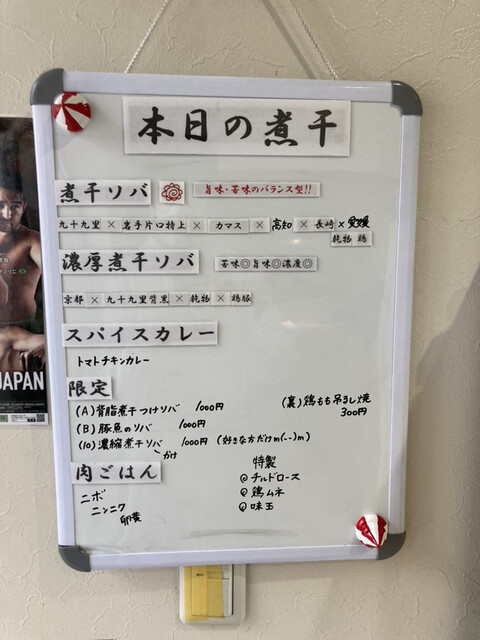 本日の煮干
煮干ソバ 旨味・苦味のバランス型!!
九十九里 × 岩手片口特上 × カマス × 高知 × 長崎 × 愛媛
乾物 鶏
濃厚煮干ソバ 苦味◎旨味◎濃度◎
京都 × 九十九里背黒 × 乾物 × 鶏豚
スパイスカレー
トマトチキンカレー
限定
(A) 背脂煮干つけソバ 1000円 (裏) 鶏もも吊るし焼
300円
(B) 豚魚のソバ 1000円
(10) 濃縮煮干ソバ 1000円 (好きな方だけm(--)m)
かけ
肉ごはん 特製
ニボ @チルドロース
ニンニク 鶏ムネ
卵黄 味玉
JAPAN